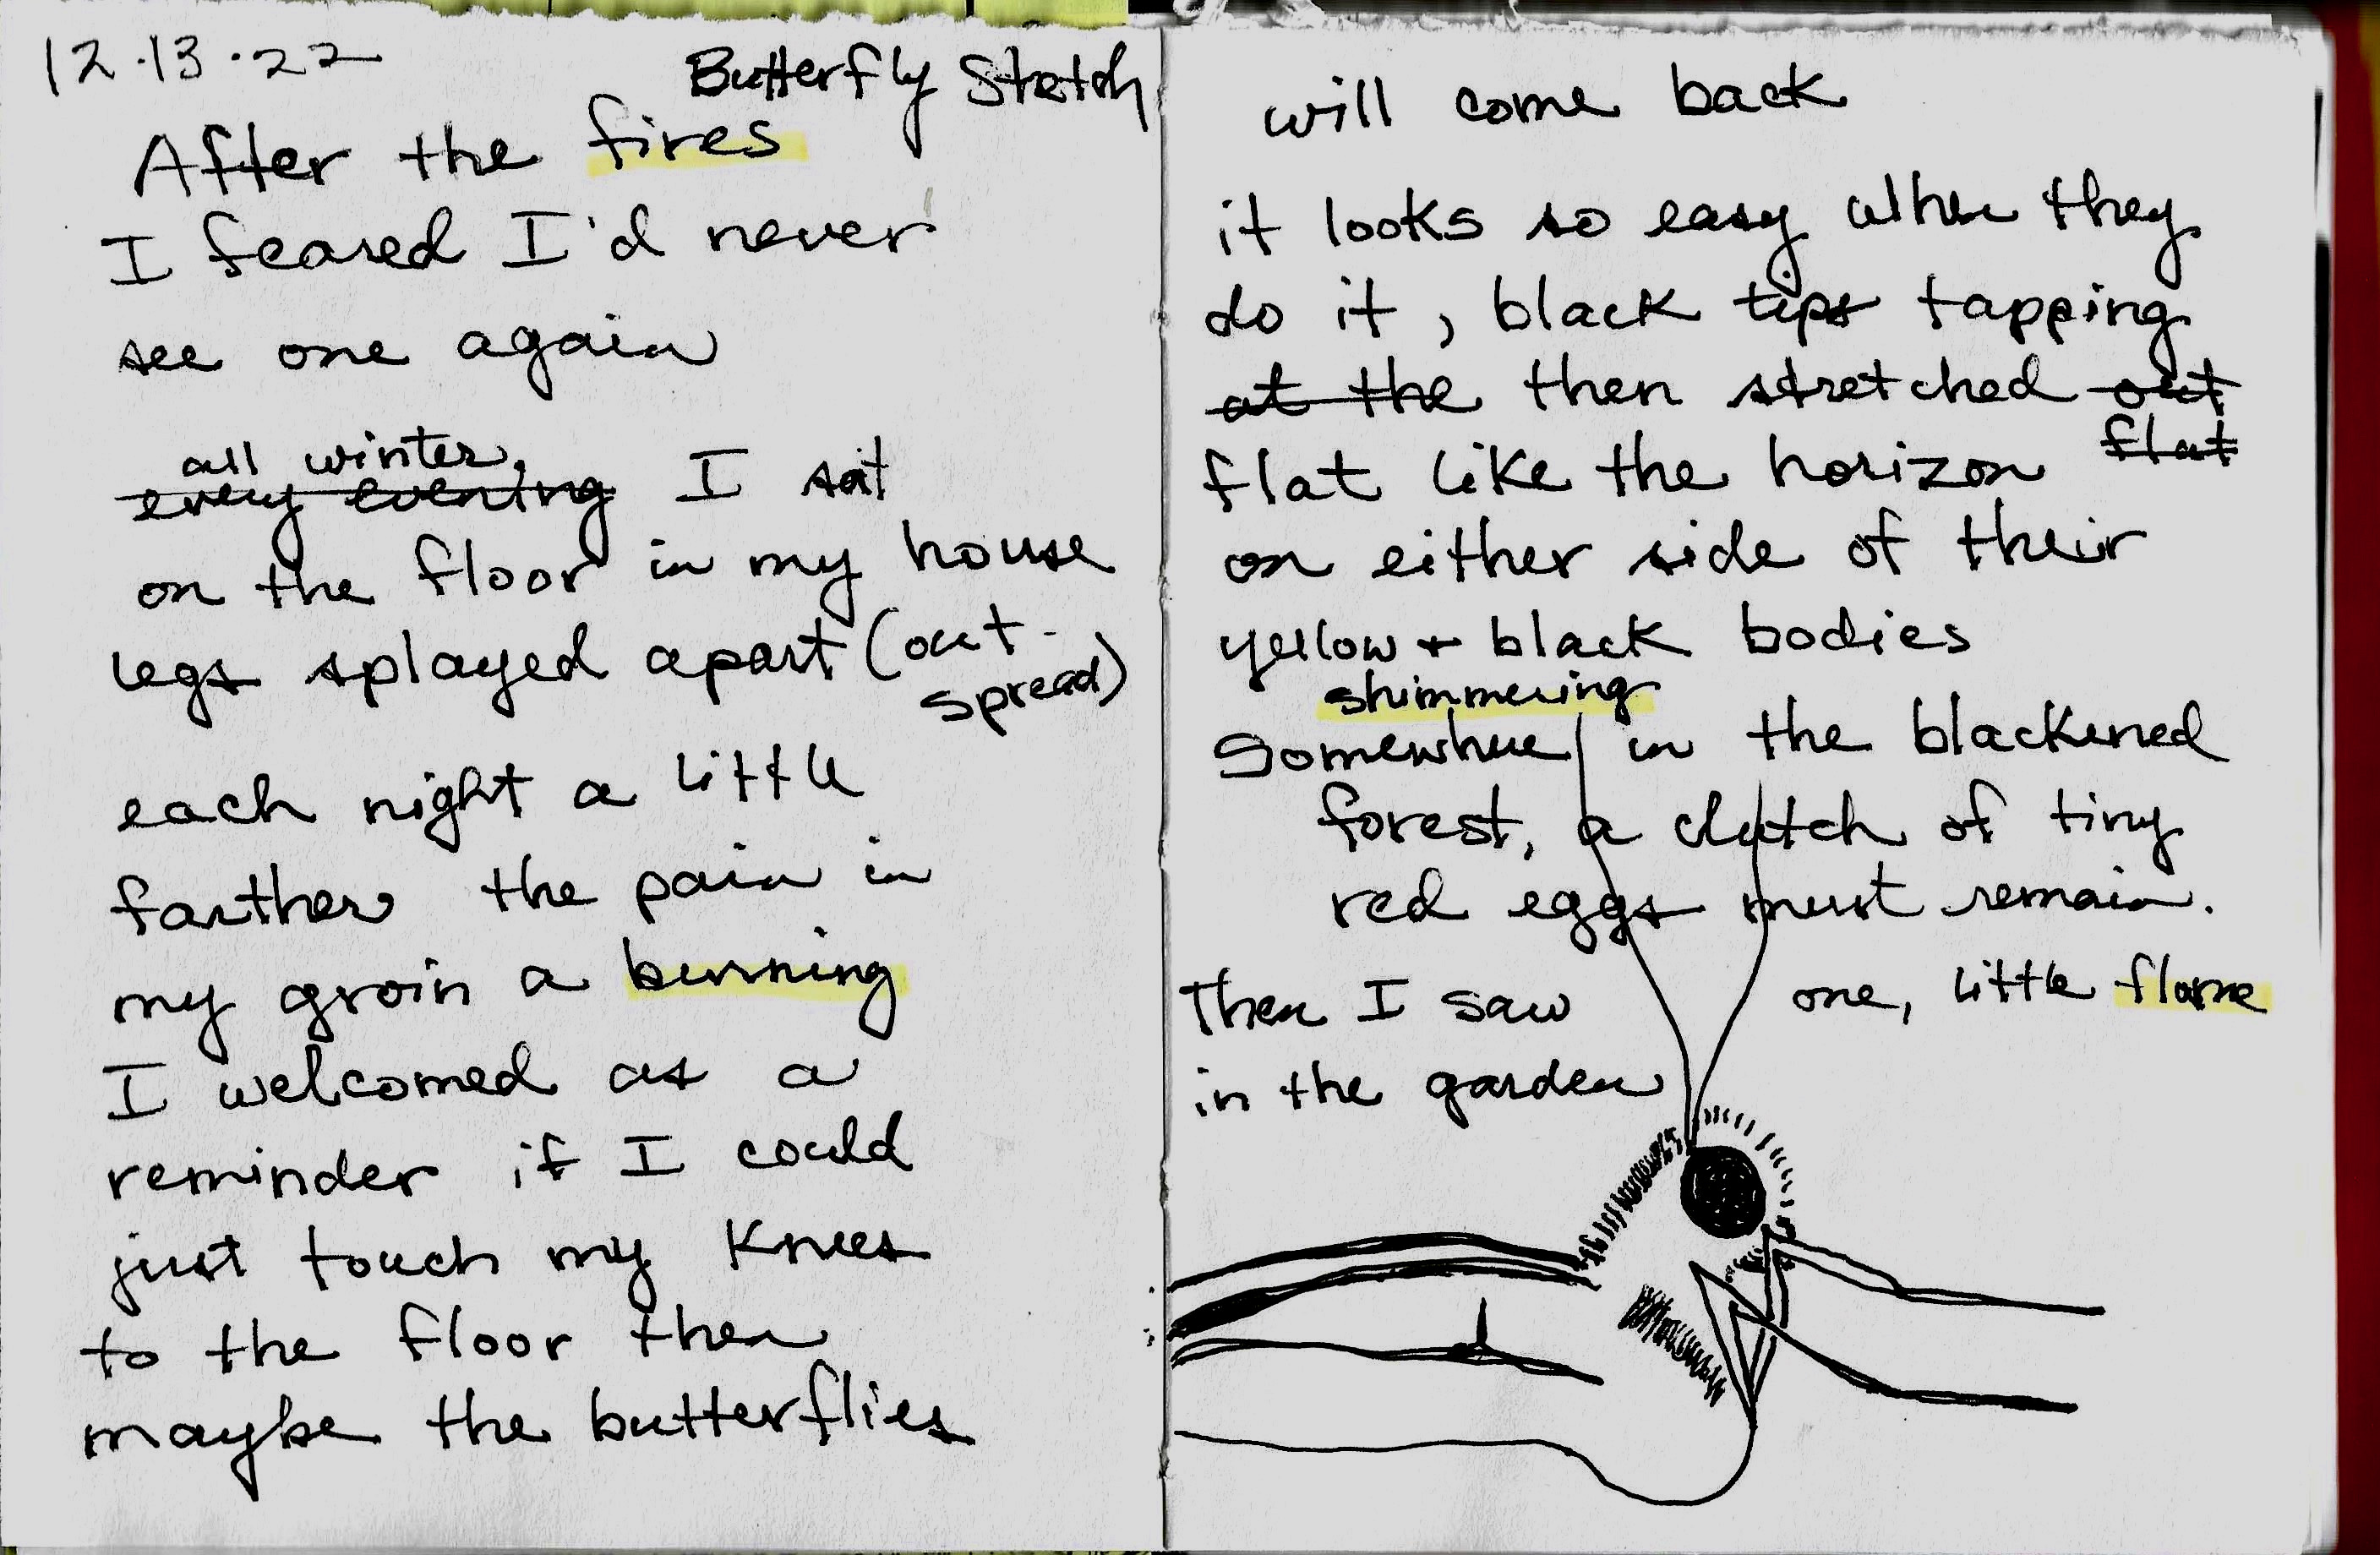 12.13.22
Butterfly Stretch
After the fires
I feared I'd never
see one again
all winter,
every evening I sat
on the floor in my house
legs splayed apart (out-
spread)
each night a little
farther the pain in
my groin a burning
I welcomed as a
reminder if I could
just touch my knees
to the floor then
maybe the butterflies
will come back
it looks so easy when they
do it, black tips tapping
at the then stretched out
flat like the horizon flat
on either side of their
yellow + black bodies
shimmering
Somewhere / in the blackened
forest, a clutch of tiny
red eggs must remain.
Then I saw one, little flame
in the garden